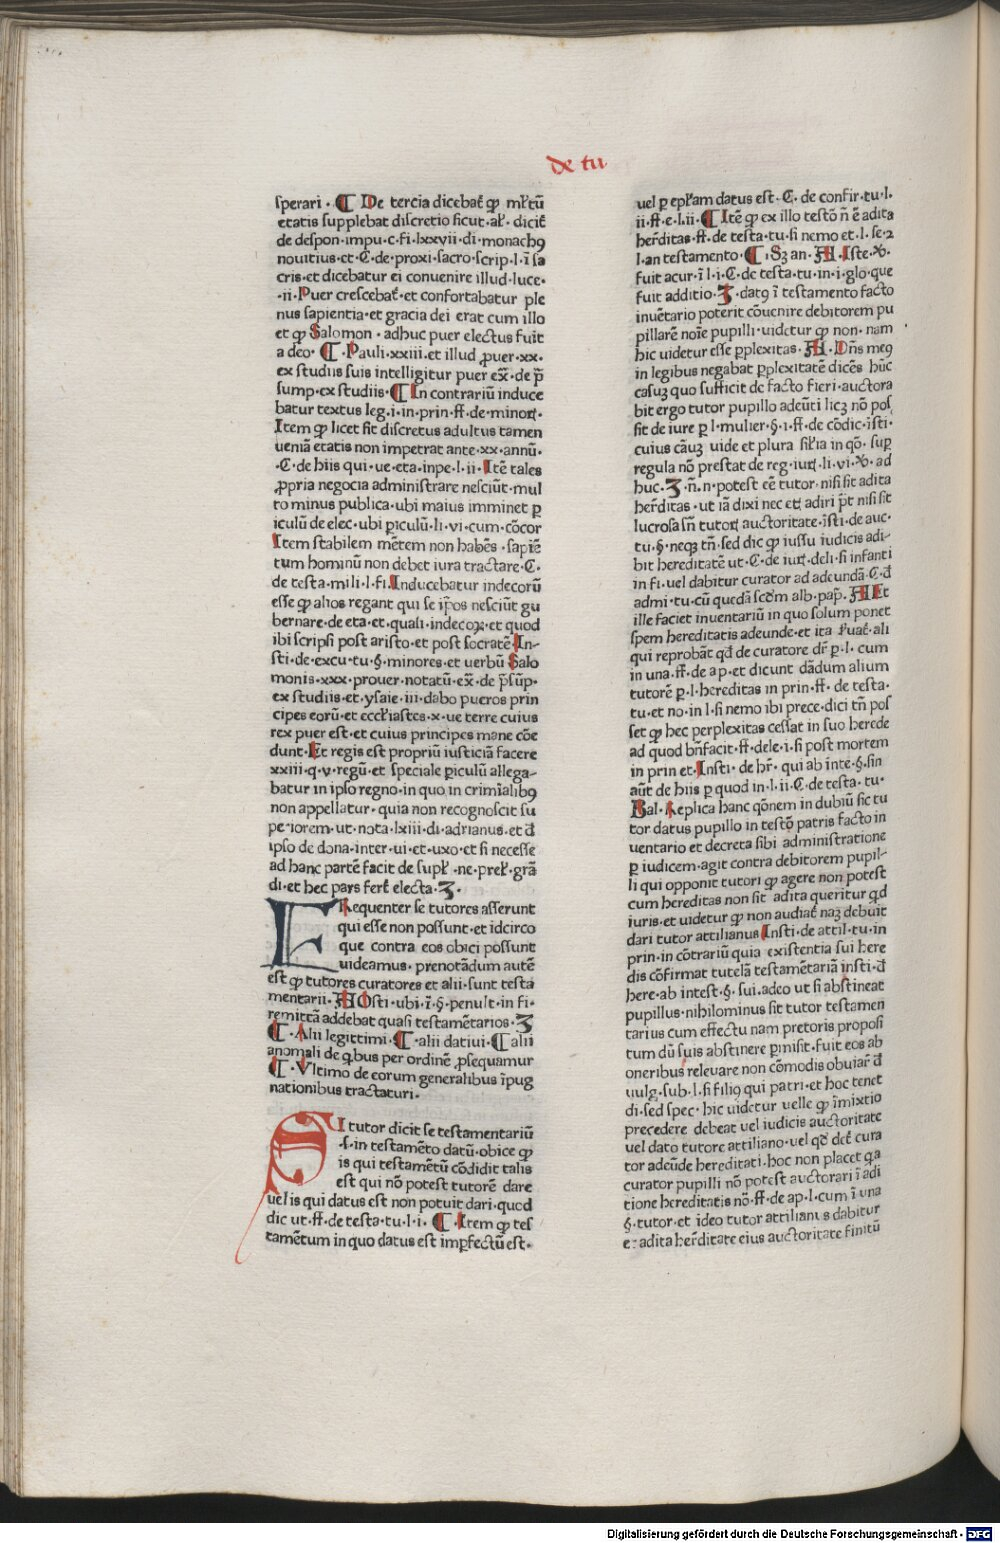 de tu
sperari · ¶ De tercia dicebat̄ qp̄ ml̄tū
etatis supplebat discretio sicut · al̄ · dicit̄
de despon · impu · c · fi · lxxvii · di · monachꝰ
nouitius · et · C · de · proxi · sacro · scrip · l · ī sa
cris · et dicebatur ei conuenire illud · luce ·
· ii · Puer crescebat̄ · et confortabatur ple
nus sapientia · et gracia dei erat cum illo
et qp̄ Salomon · adhuc puer electus fuit
a deo · ¶ · Pauli · xxiii · et illud ꝓuer · xx ·
ex studiis suis intelligitur puer ex̄ · de p̄
sump · ex studiis · ¶ In contrariū induce
batur textus leg · i · in · prin · ff · de · minoꝝ ·
Item qp̄ licet sit discretus adultus tamen
ueniā etatis non impetrat ante · xx · annū ·
· C · de hiis qui · ue · eta · inpe · l · ii · Itē tales
ꝓpria negocia administrare nesciūt · mul
to minus publica · ubi maius imminet ꝑ
iculū de elec · ubi ꝑiculū · li · vi · cum · cōcor
Item stabilem mētem non habēs · sapiē
tum hominū non debet iura tractare · C ·
de testa · mili · l · fi · Inducebatur indecorū
esse qp̄ alios regant qui se ip̄os nesciūt gu
bernare · de eta · et · quasi · indecoꝝ · et quod
ibi scripsi post aristo · et post socratē In-
sti · de · excu · tu · § · minores · et uerbū Salo
monis · xxx · prouer · notatū · ex̄ · de p̄sūp ·
ex studiis · et · ysaie · iii · dabo pueros prin
cipes eorū · et eccl̄iastes · x · ue terre cuius
rex puer est · et cuius principes mane cōe
dunt · Et regis est propriū iusticiā facere
xxiii · q · v · regū · et speciale ꝑiculū allega-
batur in ipso regno · in quo in crimīalibꝰ
non appellatur · quia non recognoscit su
periorem · ut · nota · lxiii · di · adrianus · et đ
ipso de dona · inter · ui · et · uxo · et si necesse
ad hanc partē facit de supl̄ · ne · prel̄ · grā
di · et hec pars fert̄ electa · Ʒ ·
FRequenter se tutores asserunt
qui esse non possunt · et idcirco
que contra eos obici possunt
uideamus · prenotādum autē
est qp̄ tutores curatores et alii · sunt testa
mentarii · A Osti · ubi · ī · § · penult · in fi ·
remittā addebat quasi testamētarios · Ʒ
¶ · Alii legittimi · ¶ · alii datiui · ¶ alii
anomali de qbus per ordinē ꝓsequamur
¶ · Ultimo de eorum generalibus īpug
nationibus tractaturi ·
SI tutor dicit se testamentariū
· s · in testamēto datū · obice qp̄
is qui testamētū cōdidit talis
est qui nō potest tutorē dare
uel is qui datus est non potuit dari · quod
dic ut · ff · de testa · tu · l · i · ¶ · Item qp̄ tes
tamētum in quo datus est imꝑfectū est ·
uel ꝑ epl̄am datus est · C · de confir · tu · l ·
ii · ff · e · l · ii · ¶ Itē qp̄ ex illo testō n̄ ē adita
her̄ditas · ff · de testa · tu · si nemo et · l · se · 2
l · an testamento · ¶ · Sʒ an · A · Iste · v̄ ·
fuit acur · ī l · i · C · de testa · tu · in · i · glo · que
fuit additio · Ʒ · datꝰ ī testamento facto
inuētario poterit cōuenire debitorem pu
pillarē noīe pupilli · uidetur qp̄ non · nam
hic uidetur esse ꝑplexitas · A · Dn̄s meꝰ
in legibus negabat ꝑplexitatē dicēs hūc
casuʒ quo sufficit de facto fieri · auctora
bit ergo tutor pupillo adeūti licʒ nō pos
sit de iure ꝑ l · mulier · § · i · ff · de cōdic · īsti ·
cuius cāuʒ uide et plura sil̄ia in qō · suꝑ
regula nō prestat de reg · iuꝝ · li · vi · v̄ · ad
huc · Ʒ · n̄ · n · potest eē tutor · nisi sit adita
her̄ditas · ut iā dixi nec etꝫ adiri p̄t nisi sit
lucrosa sn̄ tutoꝝ auctoritate · īsti · de auc ·
tu · § · neqʒ tn̄ · sed dic qp̄ iussu iudicis adi-
bit hereditatē ut · C · de iuꝝ · deli · si infanti
in fi · uel dabitur curator ad adeundā · C · đ
admi · tu · cū quedā scd̄m alb · pap̄ · A Et
ille faciet inuentariū in quo solum ponet
spem hereditatis adeunde · et ita ẜuat̄ · ali
qui reprobāt qđ de curatore dr̄ ꝑ · l · cum
in una · ff · de ap · et dicunt dādum alium
tutorē ꝑ · l · hereditas in prin · ff · de testa ·
tu · et no · in l · si nemo ibi prece · dici tn̄ pos
set qp̄ hec perplexitas cessat in suo herede
ad quod bn̄facit · ff · dele · i · si post mortem
in prin et · Insti · de hr̄ · qui ab inte · § · sin
aūt de hiis ꝑ quod in · l · ii · C · de testa · tu ·
Bal · Replica hanc qōnem in dubiū sic tu
tor datus pupillo in testō patris facto in
uentario et decreta sibi administratione
ꝑ iudicem · agit contra debitorem pupil-
li qui opponit tutori qp̄ agere non potest
cum hereditas non sit adita queritur qđ
iuris · et uidetur qp̄ non audiat̄ naʒ debuit
dari tutor attilianus Insti · de attil · tu · in
prin · in cōtrariū quia existentia sui here
dis cōfirmat tutelā testamētariā insti · đ
here · ab intest · § · sui · adeo ut si abstineat
pupillus · nihilominus sit tutor testamen
tarius cum effectu nam pretoris proposi
tum dū suis abstinere ꝑmisit · fuit eos ab
oneribus releuare non cōmodis obuiar̄ đ
uulg · sub · l · si filiꝰ qui patri · et hoc tenet
di · sed spec · hic uidetur uelle qp̄ īmixtio
precedere debeat uel iudicis auctoritate
uel dato tutore attiliano · uel qđ det̄ cura
tor adeūde hereditati · hoc non placet qa
curator pupilli nō potest auctorari ī adi
tione hereditatis nō · ff · de ap · l · cum ī una
§ · tutor · et ideo tutor attilianus dabitur
et adita her̄ditate eius auctoritate finitū
Digitalisierung gefördert durch die Deutsche Forschungsgemeinschaft - DFG